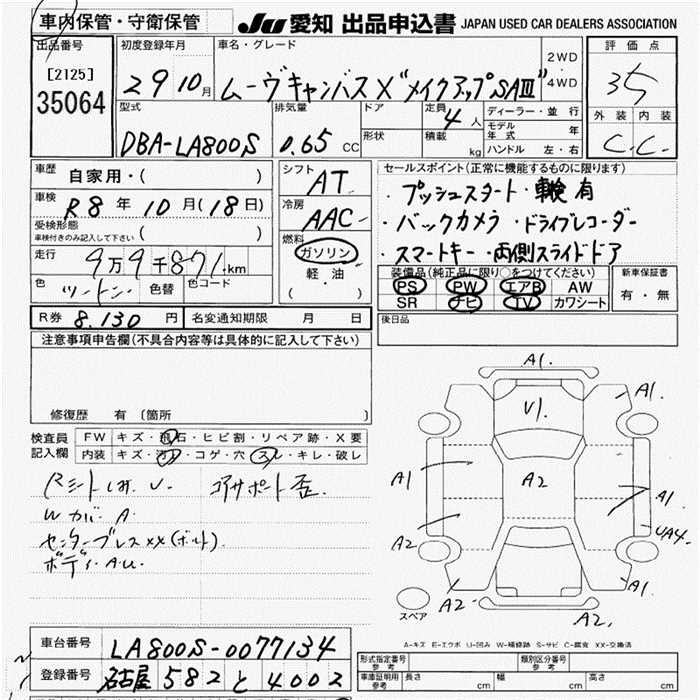 車内保管・守衛保管
JU 愛知 出品申込書 JAPAN USED CAR DEALERS ASSOCIATION
出品番号 初度登録年月 車名・グレード 評価点
[2125] 35064
29 10月 ムーヴキャンバス X"メイクアップSAⅢ" 2WD 4WD
35
型式 排気量 ドア 定員 4人 ディーラー・並行 外装 内装
DBA-LA800S 0.65 CC 形状 積載 kg モデル年式 年 C. C.
ハンドル 左・右
車歴 自家用・( ) シフト AT セールスポイント(正常に機能するものに限ります)
車検 R8年10月(18日) 冷房 AAC ・プッシュスタート・車検有
受検形態 車検付きのみ記入して下さい ( ) 燃料 ・バックカメラ・ドライブレコーダー
走行 9万9千871km ガソリン ・スマートキー・両側スライドドア
色 ツートン 色替 色コード 軽油 ( )
装備品(純正品に限り○をつけてください) 新車保証書
PS PW エアB AW 有・無
SR ナビ TV カワシート
R券 8.130円 名変通知期限 月 日 後日品
注意事項申告欄(不具合内容等は具体的に記入して下さい)
修復歴 有 [箇所 ]
検査員記入欄 FW キズ・飛石・ヒビ割・リペア跡・X要
内装 キズ・汚れ・コゲ・穴・スレ・キレ・破レ
コアサポート歪
Wカバ A
センターブレスXX(ボルト).
ボディ・AU.
A1.
A1.
V1.
A1 A2 A1
A2 UA4
A1
A2 A2.
スペア
A-キズ E-エクボ U-凹み W-補修跡 S-サビ C-腐食 XX-交換済
車台番号 LA800S-0077134 形式指定番号 参考 類別区分番号 参考
登録番号 名古屋 582 と 4002 車庫証明用 参考 長さ cm 幅 cm 高さ cm